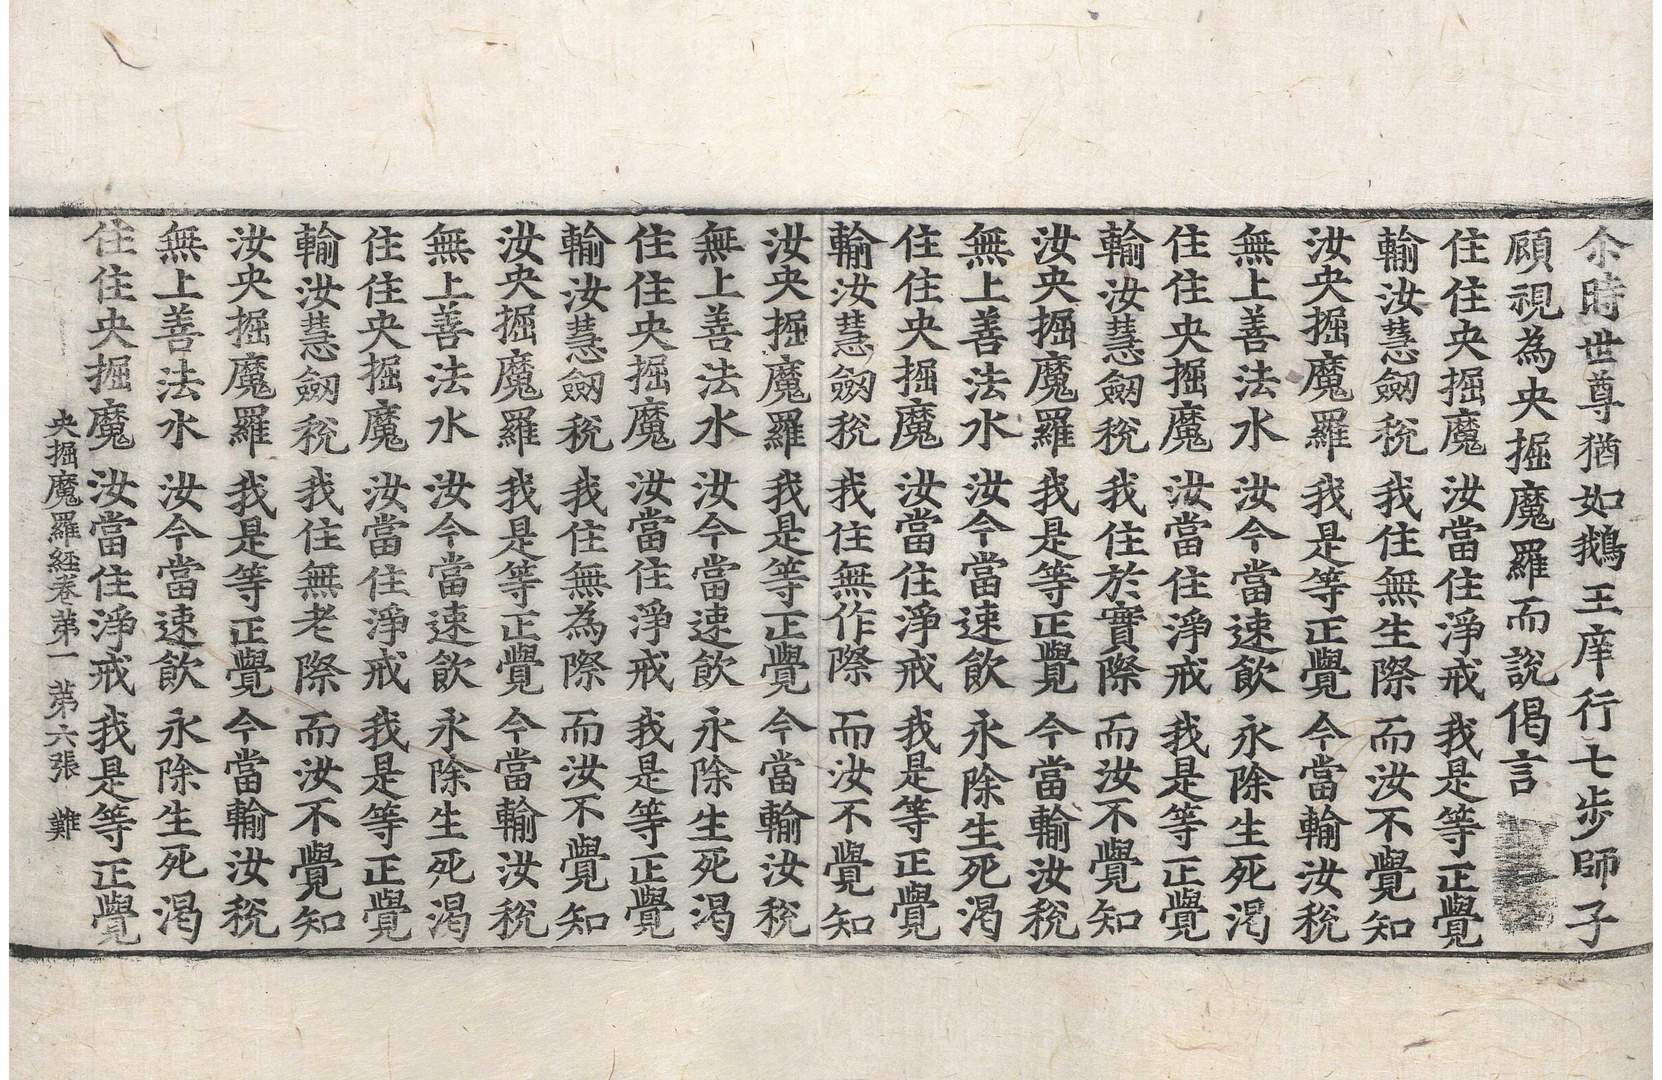 尒時世尊猶如鵝王庠行七步師子
頋視為央掘魔羅而說偈言
住住央掘魔 汝當住淨戒 我是等正覺
輸汝慧劒稅 我住無生際 而汝不覺知
汝央掘魔羅 我是等正覺 今當輸汝稅
無上善法水 汝今當速飲 永除生死渴
住住央掘魔 汝當住淨戒 我是等正覺
輸汝慧劒稅 我住於實際 而汝不覺知
汝央掘魔羅 我是等正覺 今當輸汝稅
無上善法水 汝今當速飲 永除生死渴
住住央掘魔 汝當住淨戒 我是等正覺
輸汝慧劒稅 我住無作際 而汝不覺知
汝央掘魔羅 我是等正覺 今當輸汝稅
無上善法水 汝今當速飲 永除生死渴
住住央掘魔 汝當住淨戒 我是等正覺
輸汝慧劒稅 我住無為際 而汝不覺知
汝央掘魔羅 我是等正覺 今當輸汝稅
無上善法水 汝今當速飲 永除生死渴
住住央掘魔 汝當住淨戒 我是等正覺
輸汝慧劒稅 我住無老際 而汝不覺知
汝央掘魔羅 我是等正覺 今當輸汝稅
無上善法水 汝今當速飲 永除生死渴
住住央掘魔 汝當住淨戒 我是等正覺
央掘魔羅經卷苐一 苐六張 難